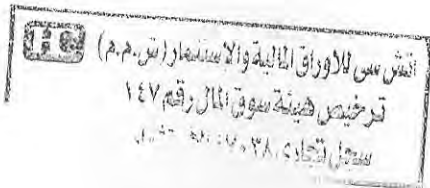 اتش سى للأوراق المالية والاستثمار (ش.م.م) HC
ترخيص هيئة سوق المال رقم ١٤٧
سجل تجارى